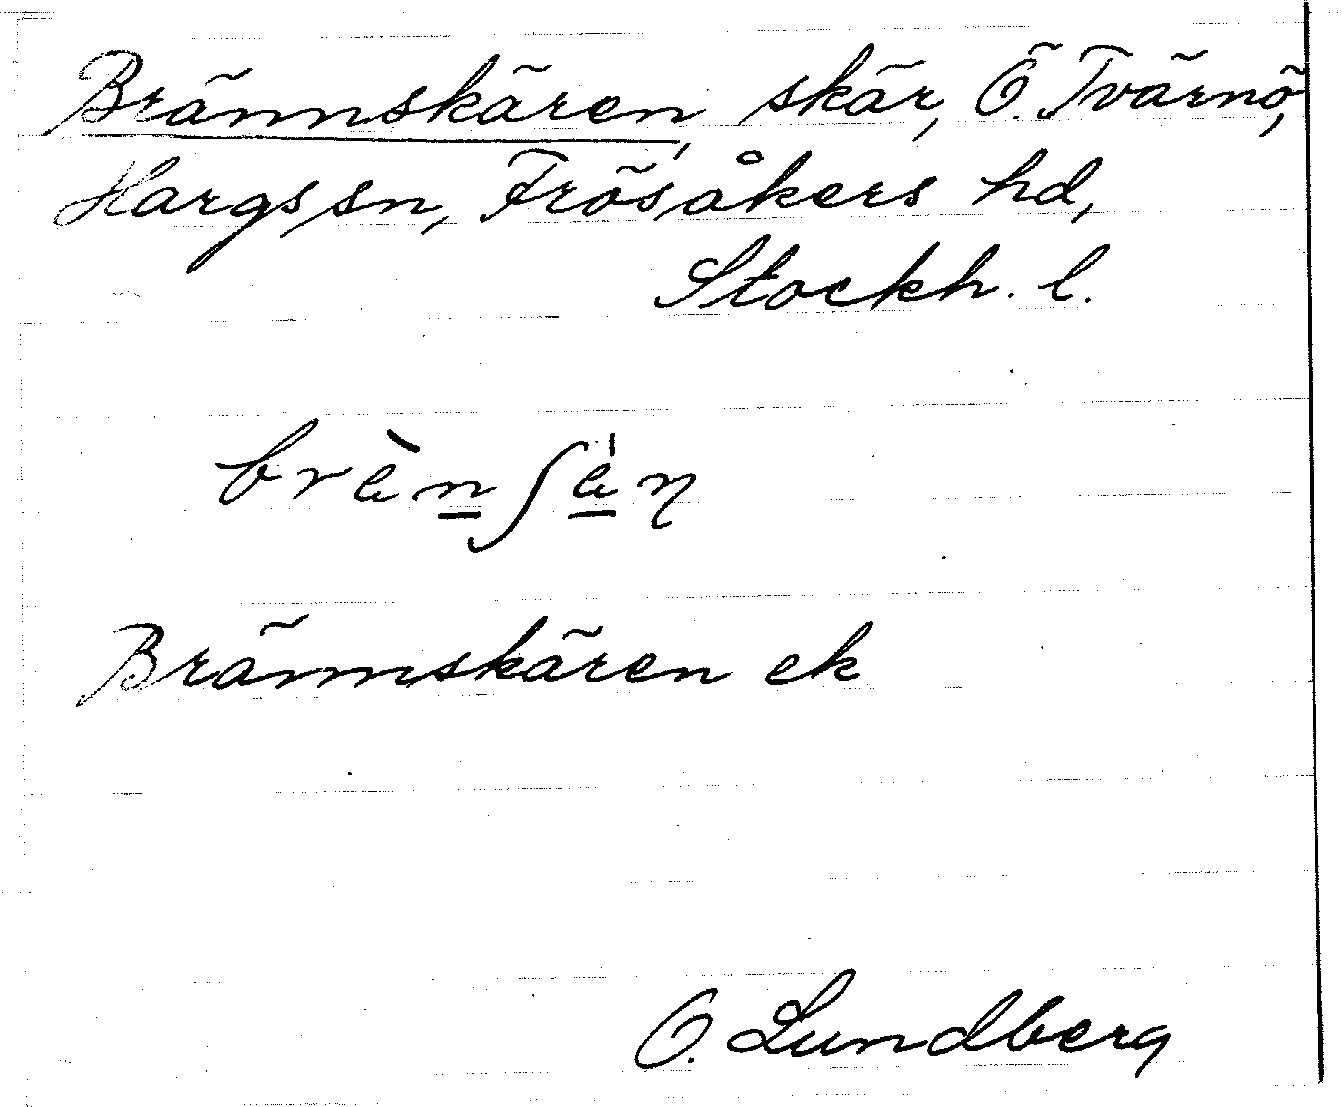 Brännskären, skär, Ö. Tvärnö,
Hargs sn, Frösåkers hd,
Stockh. l.
Brännskären ek
O. Lundberg